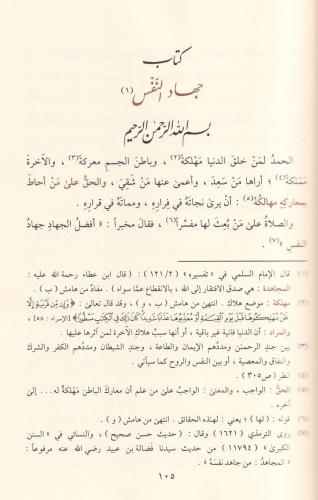 كتاب
جهاد النَّفْس (١)
بسم الله الرحمن الرحيم
الحمدُ لمَنْ خلقَ الدنيا مَهْلكة(٢) ، وباطنَ الجسمِ معركة(٣) ، والآخرةَ
مَمْلكة(٤) ؛ أراها مَن سَعِدَ ، وأعمىٰ عنها مَنْ شَقِيَ ، والحقُّ علىٰ مَنْ أحاطَ
بمعاركِهِ مهالكُهُ(٥) : أن يرىٰ نجاتَهُ في فِرارِه ، ومماتَهُ في قرارِه .
والصلاةُ علىٰ مَنْ بُعِثَ لها مفسِّراً(٦) ، فقالَ مخبراً : « أفضلُ الجهادِ جهادُ
النفسِ »(٧) .
(١) قال الإمام السلمي في «تفسيره» (١٢١/٢) : ( قال ابن عطاء رحمة الله عليه :
المجاهدة : هي صدق الافتقار إلى الله ، بالانقطاع عمَّا سواه ) . مفادٌ من هامش ( ب ) .
(٢) مهلكة : موضع هلاك . انتهىٰ من هامش ( و ) ، وقد قال تعالىٰ : ﴿وَإِن مِّن قَرْيَةٍ إِلَّا
نَحْنُ مُهْلِكُوهَا قَبْلَ يَوْمِ الْقِيَامَةِ أَوْ مُعَذِّبُوهَا عَذَابًا شَدِيدًا كَانَ ذَٰلِكَ فِي الْكِتَابِ مَسْطُورًا﴾ [الإسراء : ٥٨] ،
والمراد : أن الدنيا فانية غير باقية ، أو أنها سببُ هلاك الآخرة لمن آثرها عليها .
(٣) بين جند الرحمٰن ومددُهم الإيمان والطاعة ، وجند الشيطان ومددُهم الكفر والشرك
والنفاق والمعصية ، أو بين النفس والروح كما سيأتي .
(٤) انظر ( ص٣٠٥ ) .
(٥) الحقُّ : الواجب ، والمعنىٰ : الواجبُ علىٰ من علم أن معاركَ الباطن مَهْلكةٌ له ... إلىٰ
آخره .
(٦) قوله : ( لها ) ؛ يعني : لهذه الحقائق . انتهىٰ من هامش ( و ) .
(٧) روى الترمذي ( ١٦٢١ ) وقال : ( حديث حسن صحيح ) ، والنسائي في « السنن
الكبرىٰ » ( ١١٧٩٤ ) من حديث سيدنا فضالة بن عبيد رضي الله عنه مرفوعاً :
« المجاهدُ : من جاهد نفسَهُ » .
١٠٥